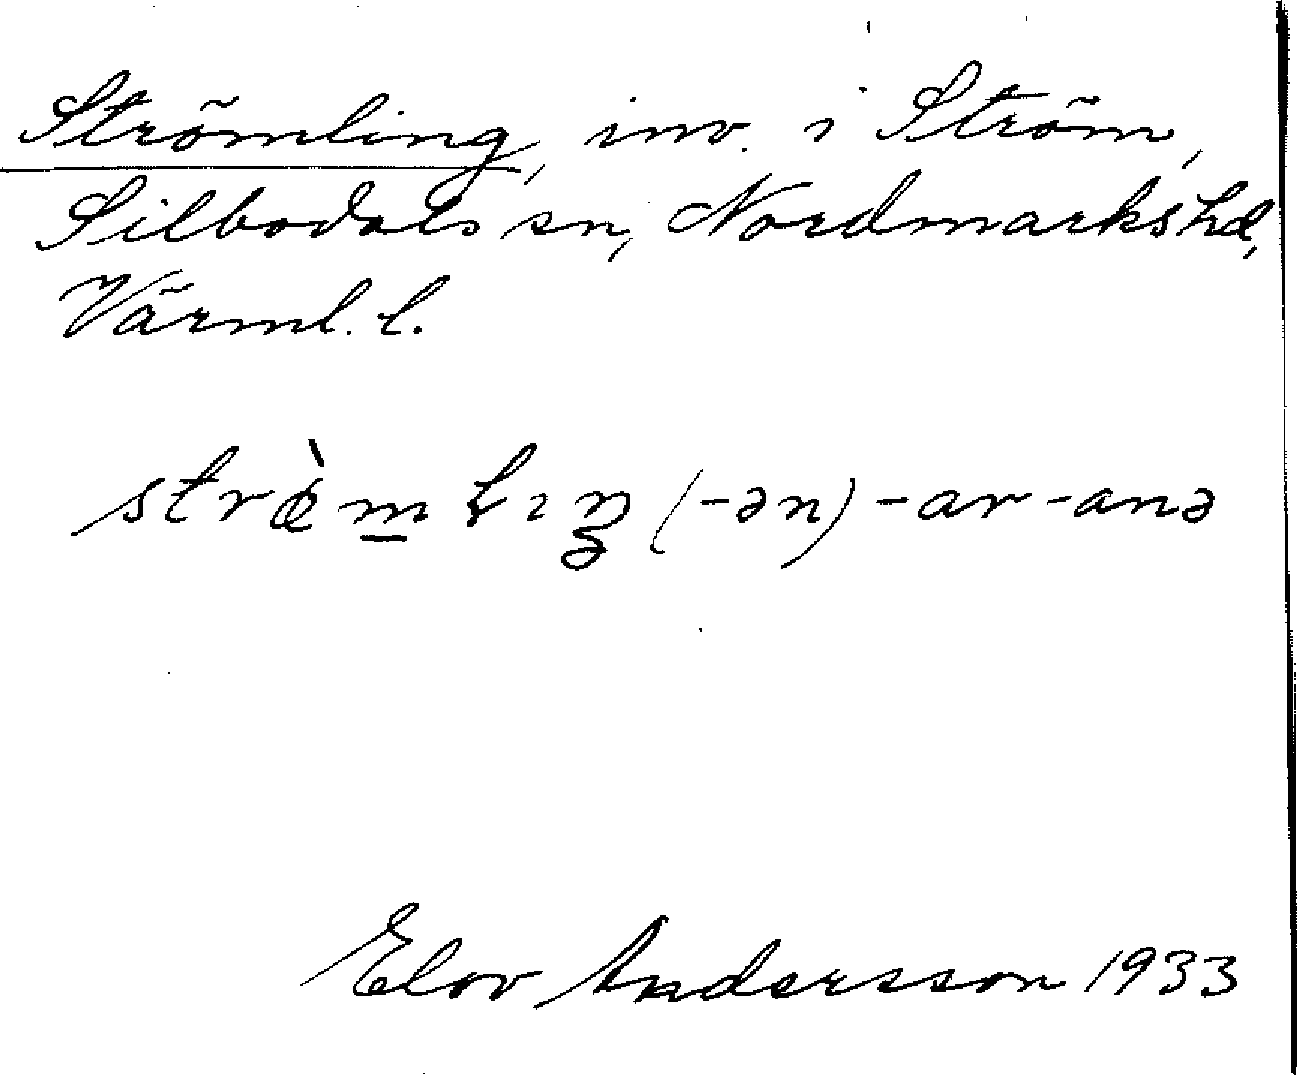 Strömling, inv. i Ström,
Silbodals sn, Nordmarks hd,
Värml. l.
(-ən) -ar -anə
Elov Andersson 1933